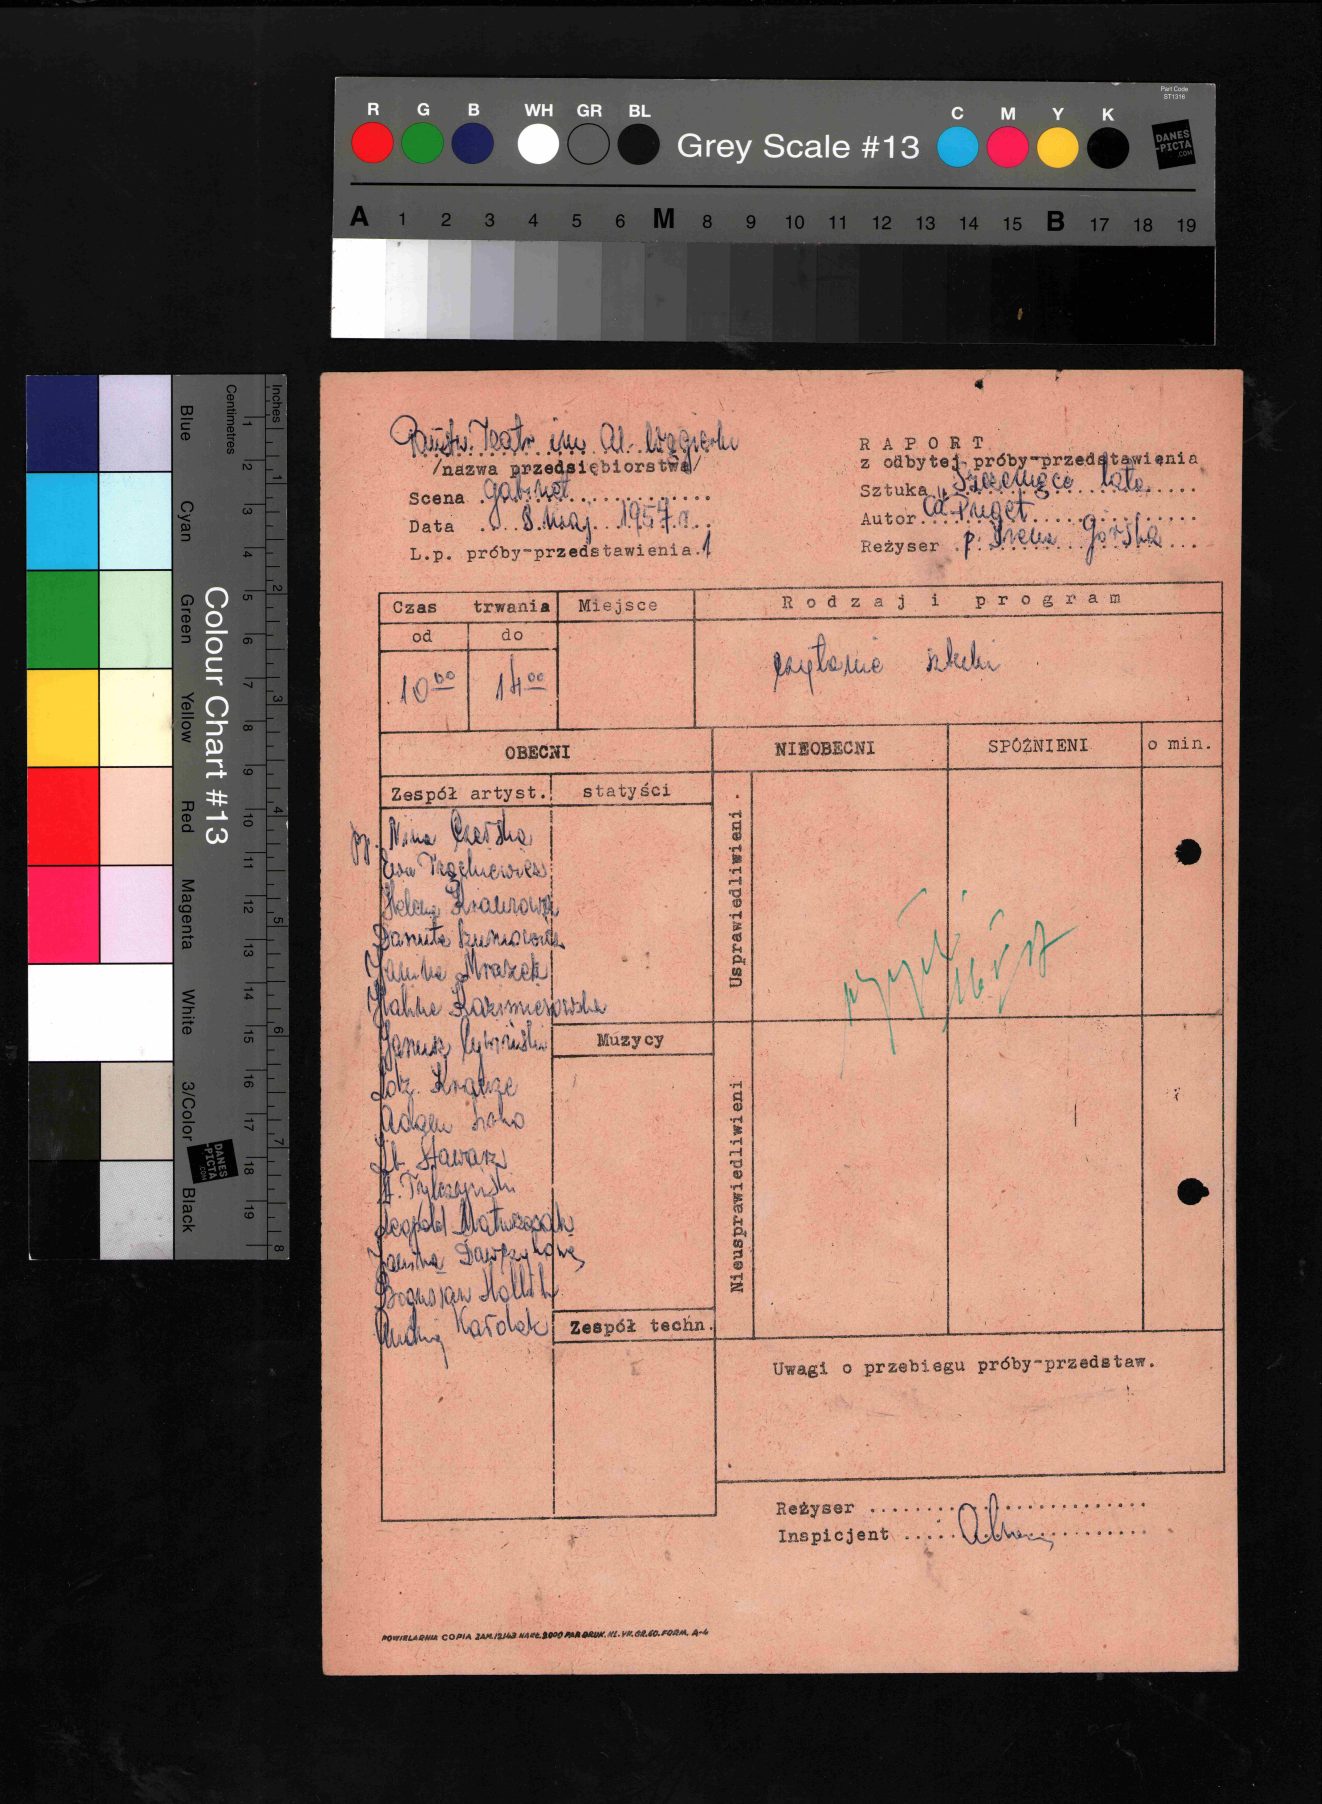 Part Code
ST1316
R G B WH GR BL Grey Scale #13 C M Y K
DANES
-PICTA
.COM
A 1 2 3 4 5 6 M 8 9 10 11 12 13 14 15 B 17 18 19
Colour Chart #13
Blue Cyan Green Yellow Red Magenta White 3/Color Black
Centimetres
1 2 3 4 5 6 7 8 9 10 11 12 13 14 15 16 17 18 19
Inches
1 2 3 4 5 6 7 8
DANES
-PICTA
.COM
Państw. Teatr im Al. Węgierki
/nazwa przedsiębiorstwa/
Scena Gabinet
Data 8 maj 1957 r.
L.p. próby-przedstawienia 1
RAPORT
z odbytej próby-przedstawienia
Sztuka Szczenięce lata
Autor Puget
Reżyser p. Irena Górska
Czas trwania Miejsce Rodzaj i program
od do
10 00 14 00 czytanie sztuki
OBECNI NIEOBECNI SPÓŹNIENI o min.
Zespół artyst. statyści
Usprawiedliwieni.
Nieusprawiedliwieni
pp. Nina Czerska
Ewa
Helena Krauzowa
Danuta
Janina Mrazek
Halina Kazimierowska
Janusz
Krauze
Adam
Zb. Stawarz
Leopold Matuszczak
Janina
Bogusław
Andrzej Karolak
Muzycy
Zespół techn.
Uwagi o przebiegu próby-przedstaw.
Reżyser
Inspicjent
POWIELARNIA COPIA ZAM. 12143 NAKŁ. 2000 PAP. DRUK. KL. VII. GR. 60. FORM. A-4